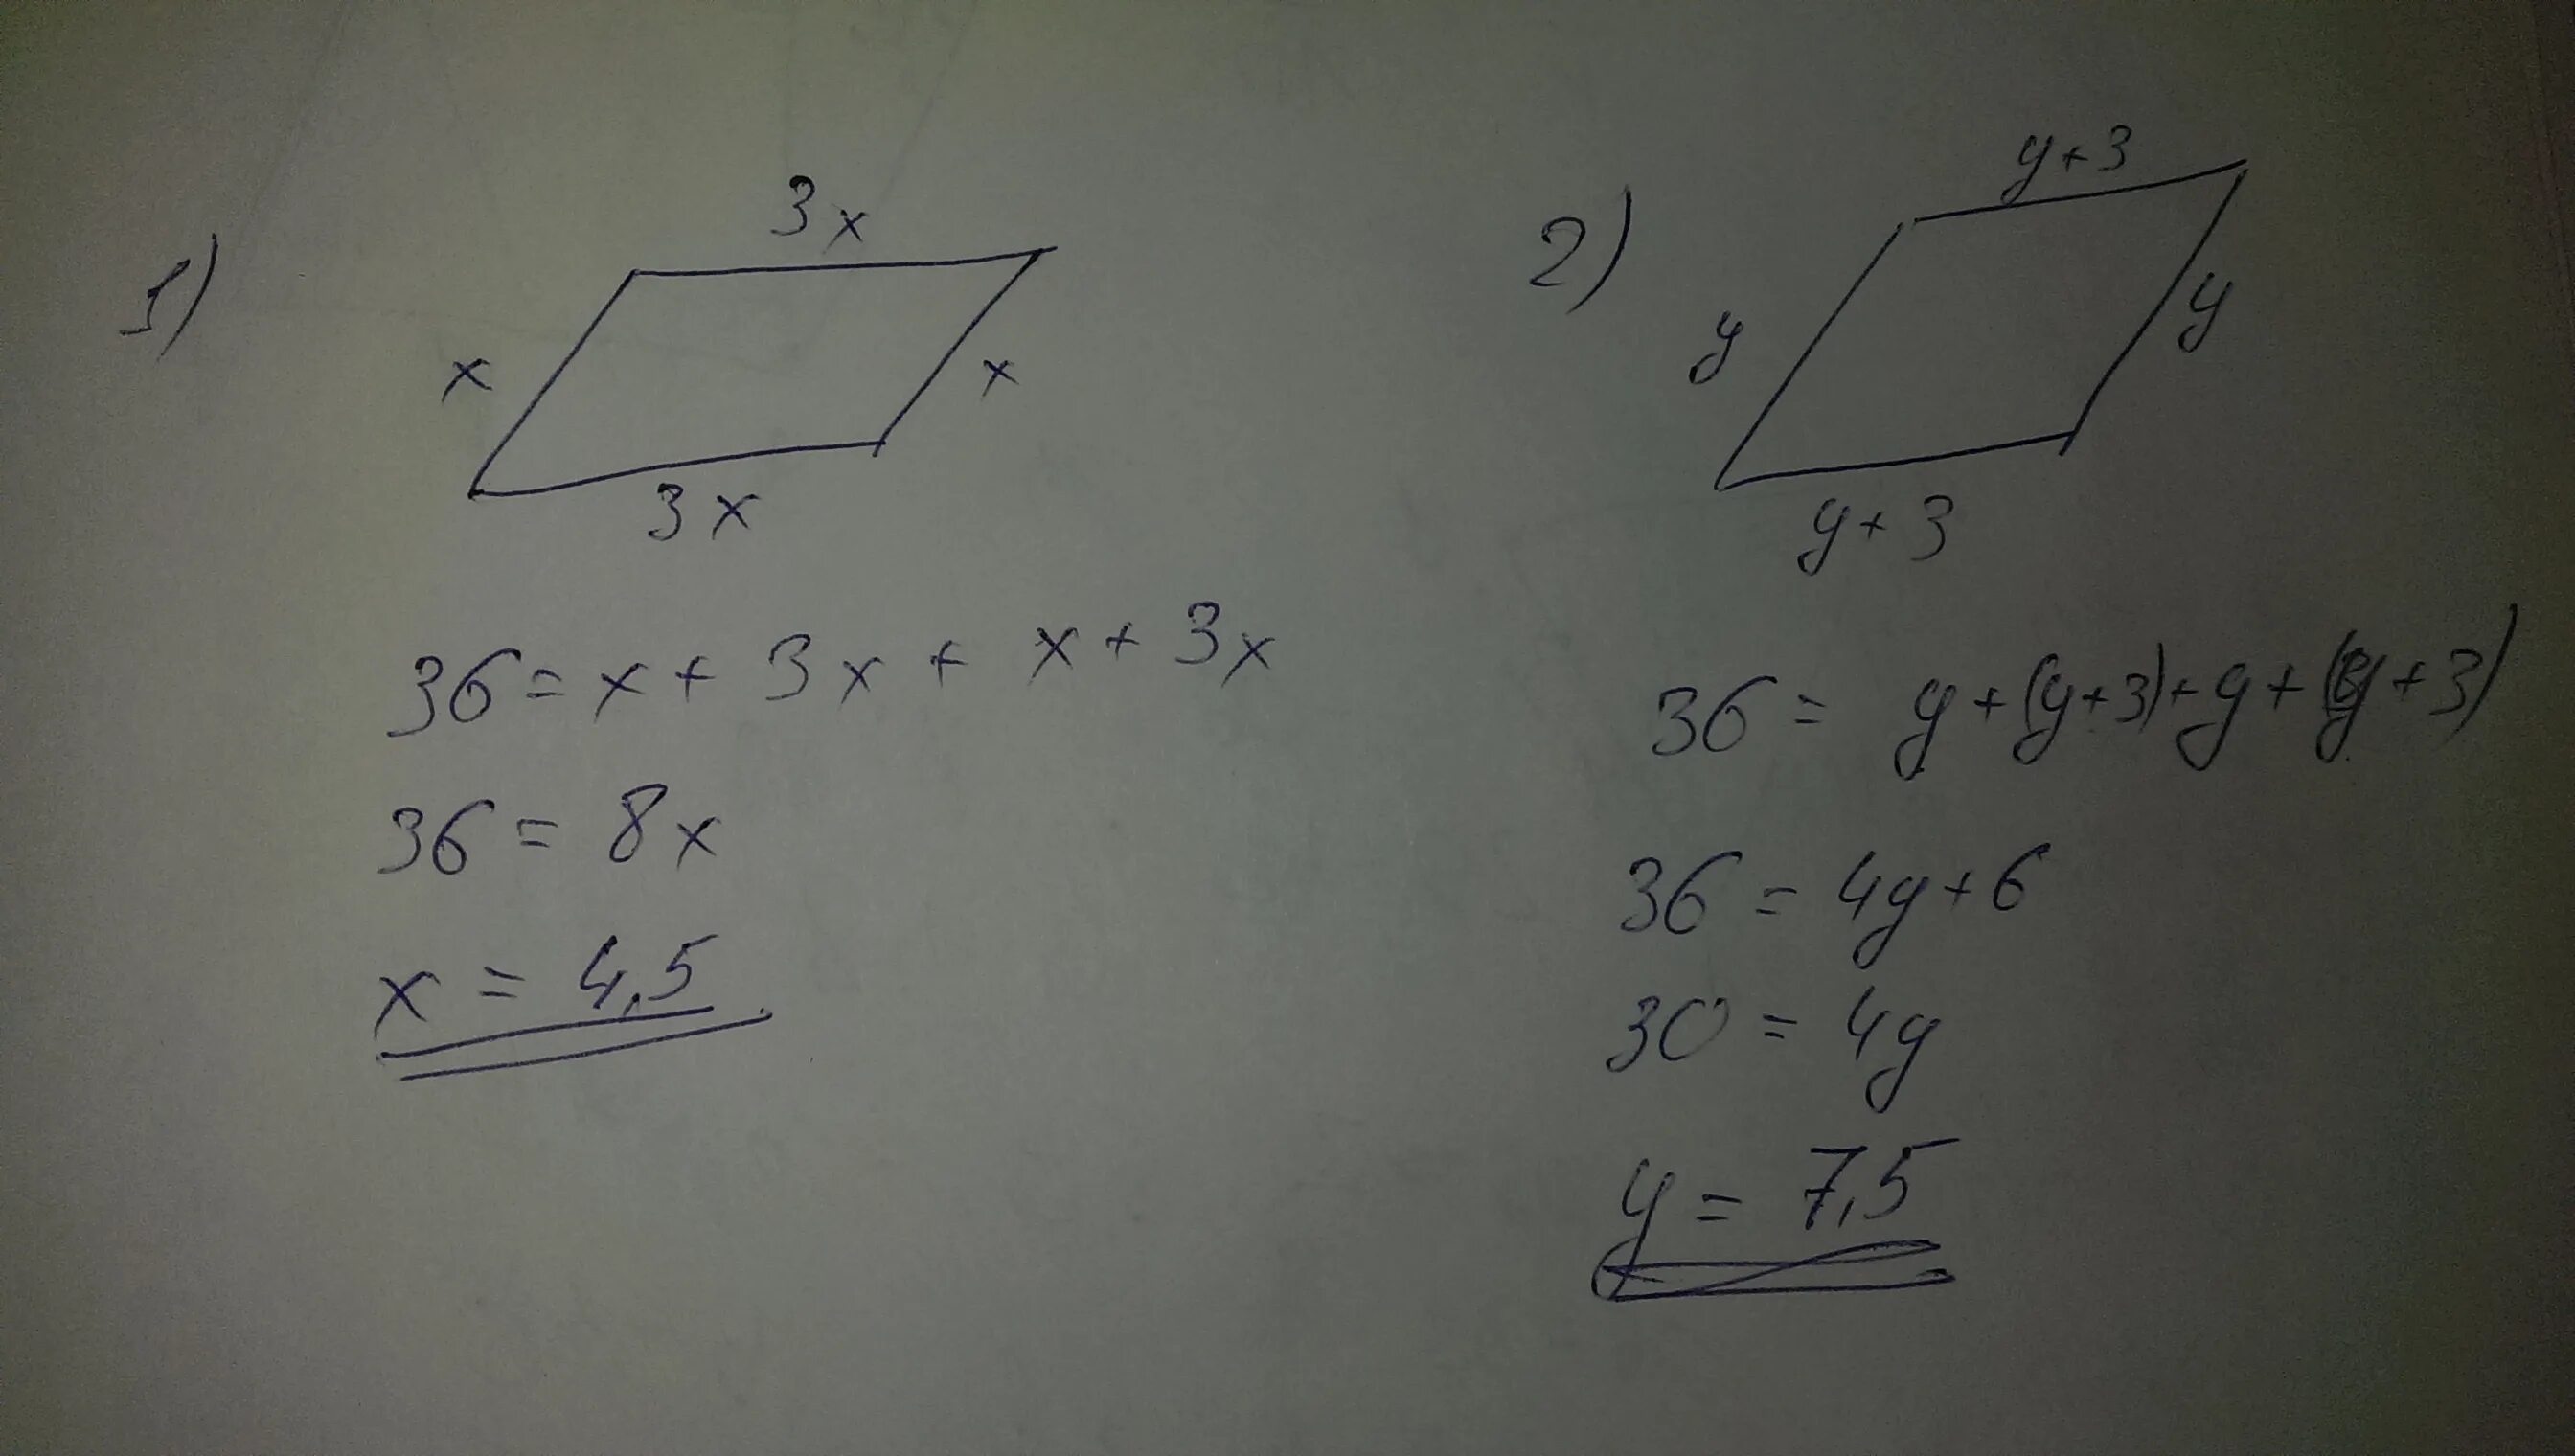 1)
3x
x
x
3x
36 = x + 3x + x + 3x
36 = 8x
x = 4,5
2)
y+3
y
y
y+3
36 = y+(y+3)+y+(y+3)
36 = 4y+6
30 = 4y
y = 7,5